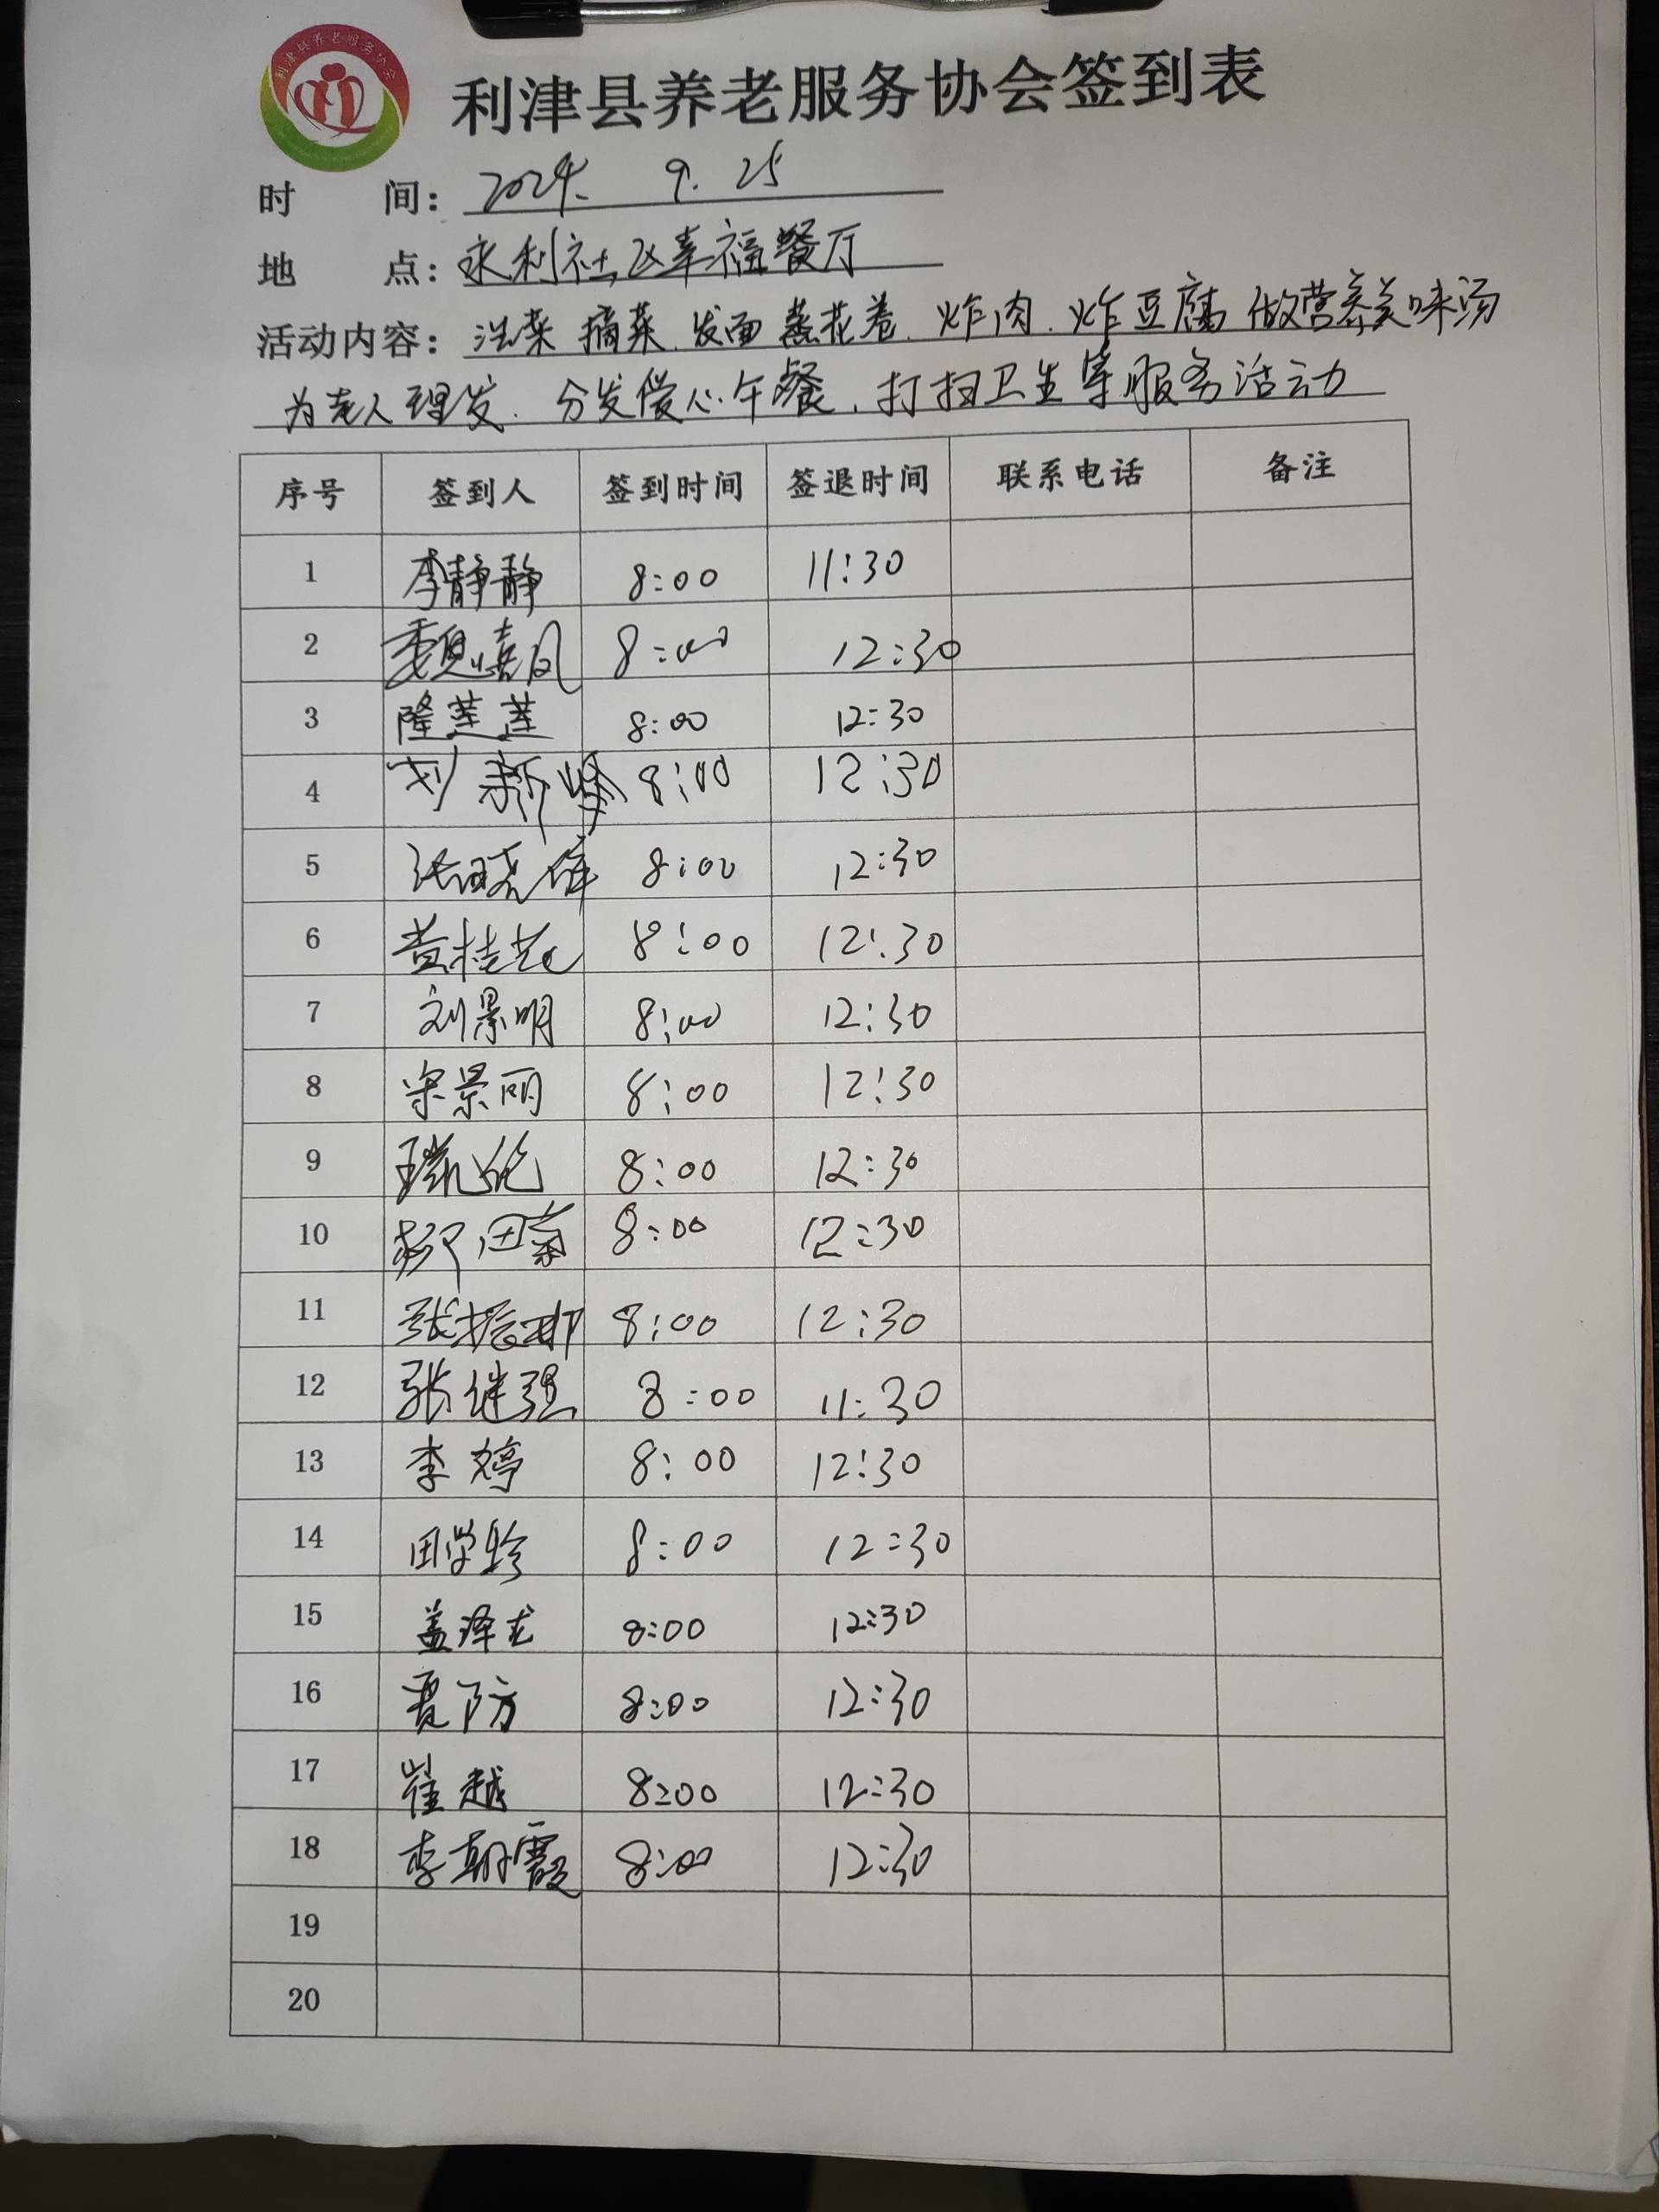 利津县养老服务协会
利津县养老服务协会签到表
时 间: 2024. 9. 25
地 点: 永利社区幸福餐厅
活动内容: 洗菜 摘菜. 发面 蒸花卷. 炸肉. 炸豆腐 做营养美味汤
为老人理发. 分发爱心午餐. 打扫卫生等服务活动
序号 签到人 签到时间 签退时间 联系电话 备注
1 李静静 8:00 11:30
2 8:00 12:30
3 隆莲莲 8:00 12:30
4 刘新峰 8:00 12:30
5 张晓伟 8:00 12:30
6 黄桂花 8:00 12:30
7 刘景明 8:00 12:30
8 宋景丽 8:00 12:30
9 8:00 12:30
10 8:00 12:30
11 8:00 12:30
12 张继强 8:00 11:30
13 李婷 8:00 12:30
14 田学珍 8:00 12:30
15 盖泽龙 8:00 12:30
16 贾防 8:00 12:30
17 崔越 8:00 12:30
18 李朝霞 8:00 12:30
19
20